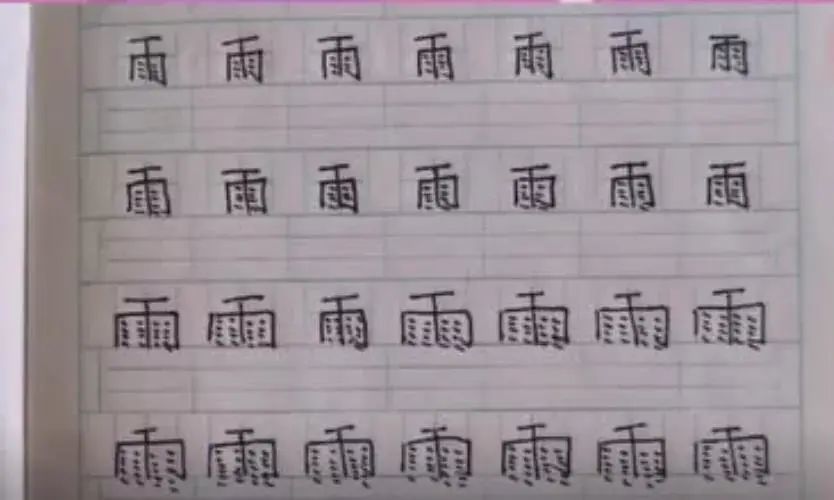 雨雨雨雨雨雨雨
雨雨雨雨雨雨雨
雨雨雨雨雨雨雨
雨雨雨雨雨雨雨